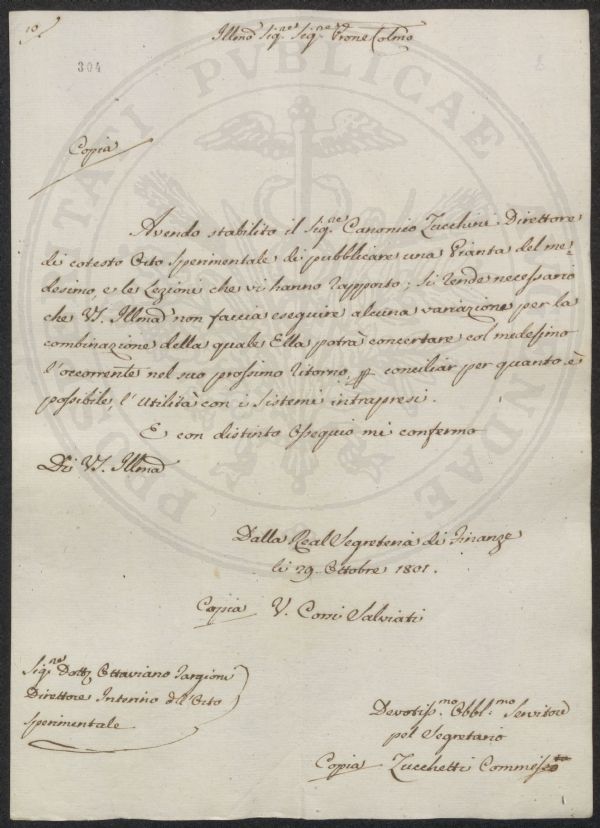 10
Illmo Sig.re Sig.re Prone Colmo
304
Copia
Avendo stabilito il Sig.re Canonico Zucchini Direttore
di cotesto Orto Sperimentale di pubblicare una Pianta del me=
desimo, e le Lezioni che vi hanno rapporto; si rende necessario
che VS. Illma non faccia eseguire alcuna variazione per la
combinazione della quale Ella potrà concertare col medesimo
l'occorrente nel suo prossimo ritorno, conciliar per quanto è
possibile, l'utilità con i sistemi intrapresi.
E con distinto Ossequio mi confermo
Di VS. Illma
Dalla Real Segreteria di Finanze
li 29 Ottobre 1801.
Copia V. Corsi Salviati
Sig.re Dott. Ottaviano Targioni
Direttore Interino dell'Orto
Sperimentale
Devotiss.mo Obbl.mo Servitore
pel Segretario
Copia Zucchetti Commesso
PROSPERITATI PVBLICAE AVGENDAE